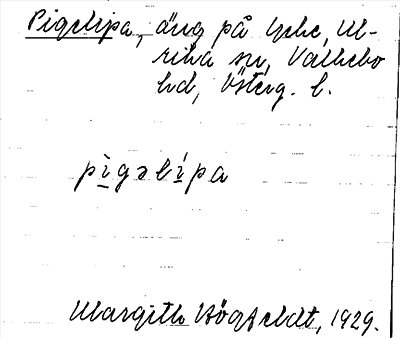 Pigelipa, äng på Yebe, Ul-
rika sn, Valkebo
hd, Österg. l.
pìgəlípa
Margith Högfeldt, 1929.